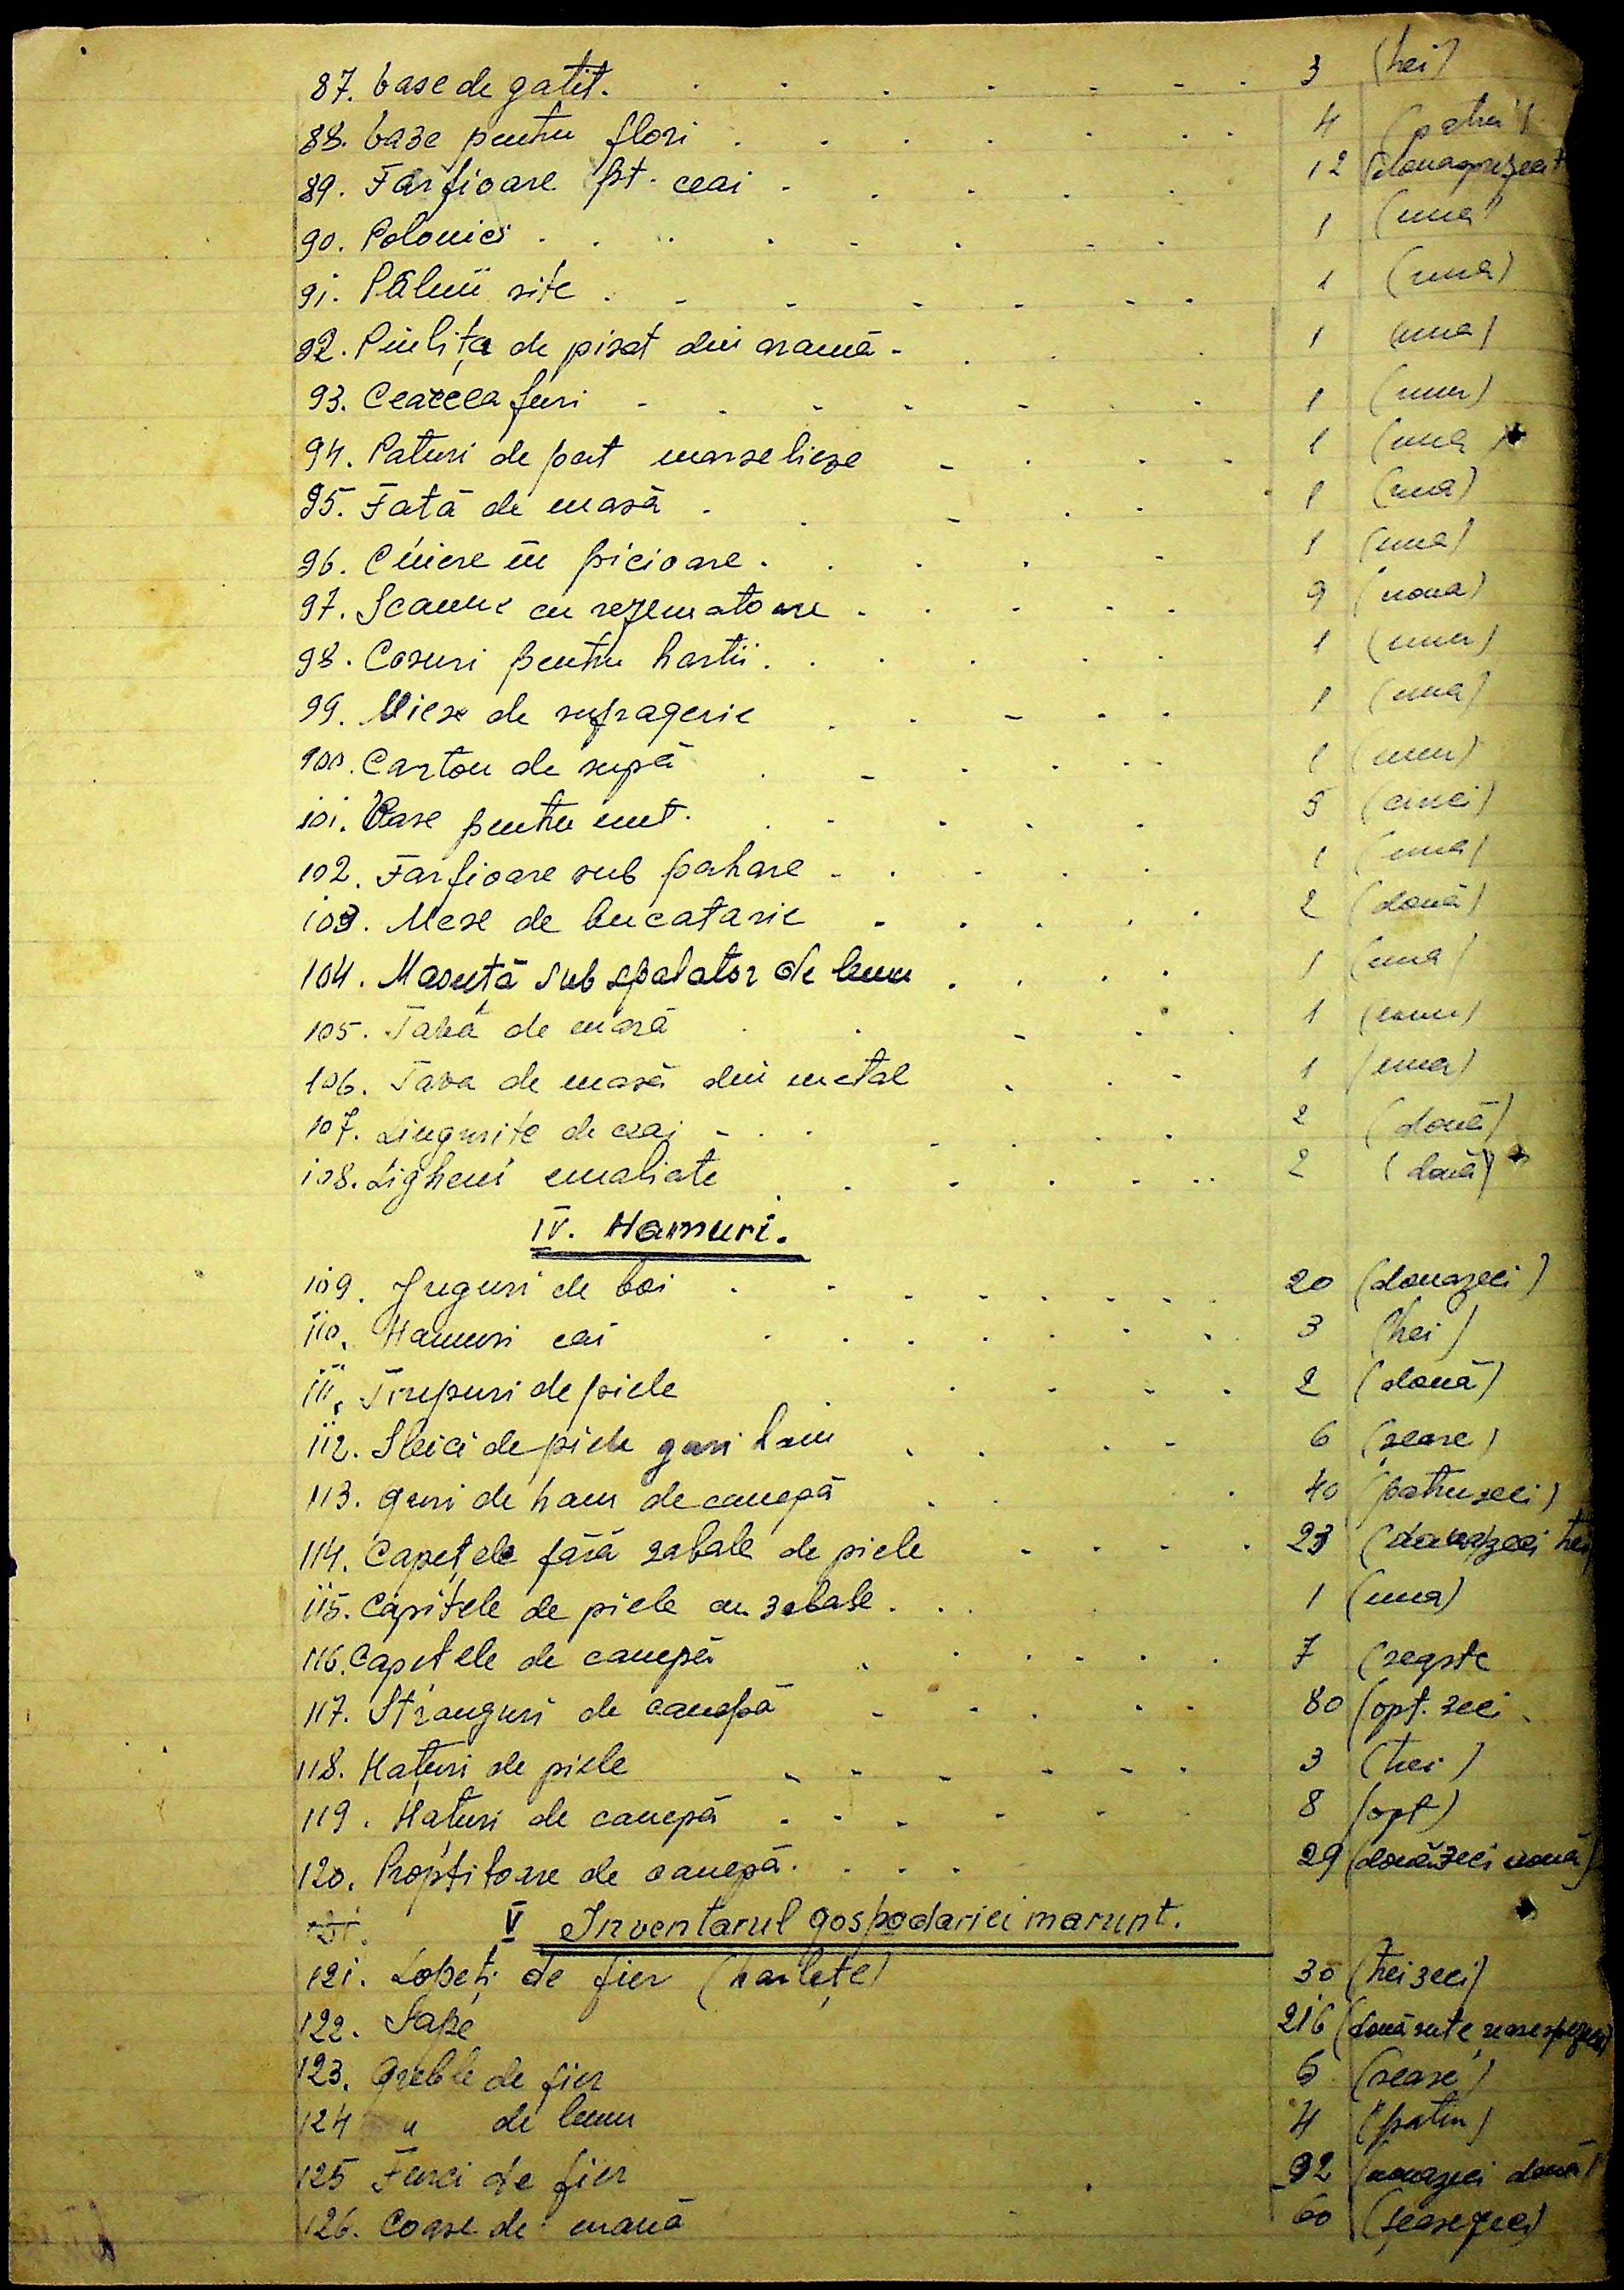 87. Vase de gatit. 3 (trei)
88. Vaze pentru flori 4 (patru)
89. Farfioare pt. ceai 12 (douasprezece)
90. Polonici 1 (una)
91. Pâlnii site 1 (una)
92. Piuliţa de pisat din aramă 1 (una)
93. Cearceafuri 1 (unu)
94. Paturi de pat marselieze 1 (una)
95. Fată de masă 1 (una)
96. Cuiere în picioare 1 (una)
97. Scaune cu rezematoare 9 (noua)
98. Cosuri pentru hartii 1 (unu)
99. Mese de sufragerie 1 (una)
100. Caston de supă 1 (unu)
101. Vase pentru unt 5 (cinci)
102. Farfioare sub pahare 1 (una)
103. Mese de bucatarie 2 (două)
104. Masuţă sub spalator de lemn 1 (una)
105. Tavă de masă 1 (una)
106. Tava de masă din metal 1 (una)
107. Lingurite de ceai 2 (două)
108. Ligheni emaliate 2 (două)
IV. Hamuri.
109. Juguri de boi 20 (douazeci)
110. Hamuri cai 3 (trei)
111. Trupuri de piele 2 (două)
112. Sleici de piele guri ham 6 (sease)
113. guri de ham de canepă 40 (patruzeci)
114. Capeţele fără zabale de piele 23 (douazeci trei)
115. Capitele de piele cu zabale 1 (una)
116. Capetele de canepă 7 (seapte
117. Ştranguri de canepă 80 (opt. zeci
118. Haţuri de piele 3 (trei)
119. Haturi de canepă 8 (opt)
120. Proptitoare de canepă 29 (douăzeci nouă)
V Inventarul gospodariei marunt.
121. Lopeţi de fier (harleţe) 30 (treizeci)
122. Sape 216 (două sute seasesprezece)
123. Greble de fier 6 (sease)
124 " de lemn 4 (patru)
125 Furci de fier 92 (nouazeci două)
126. Coase de mană 60 (şeasezeci)